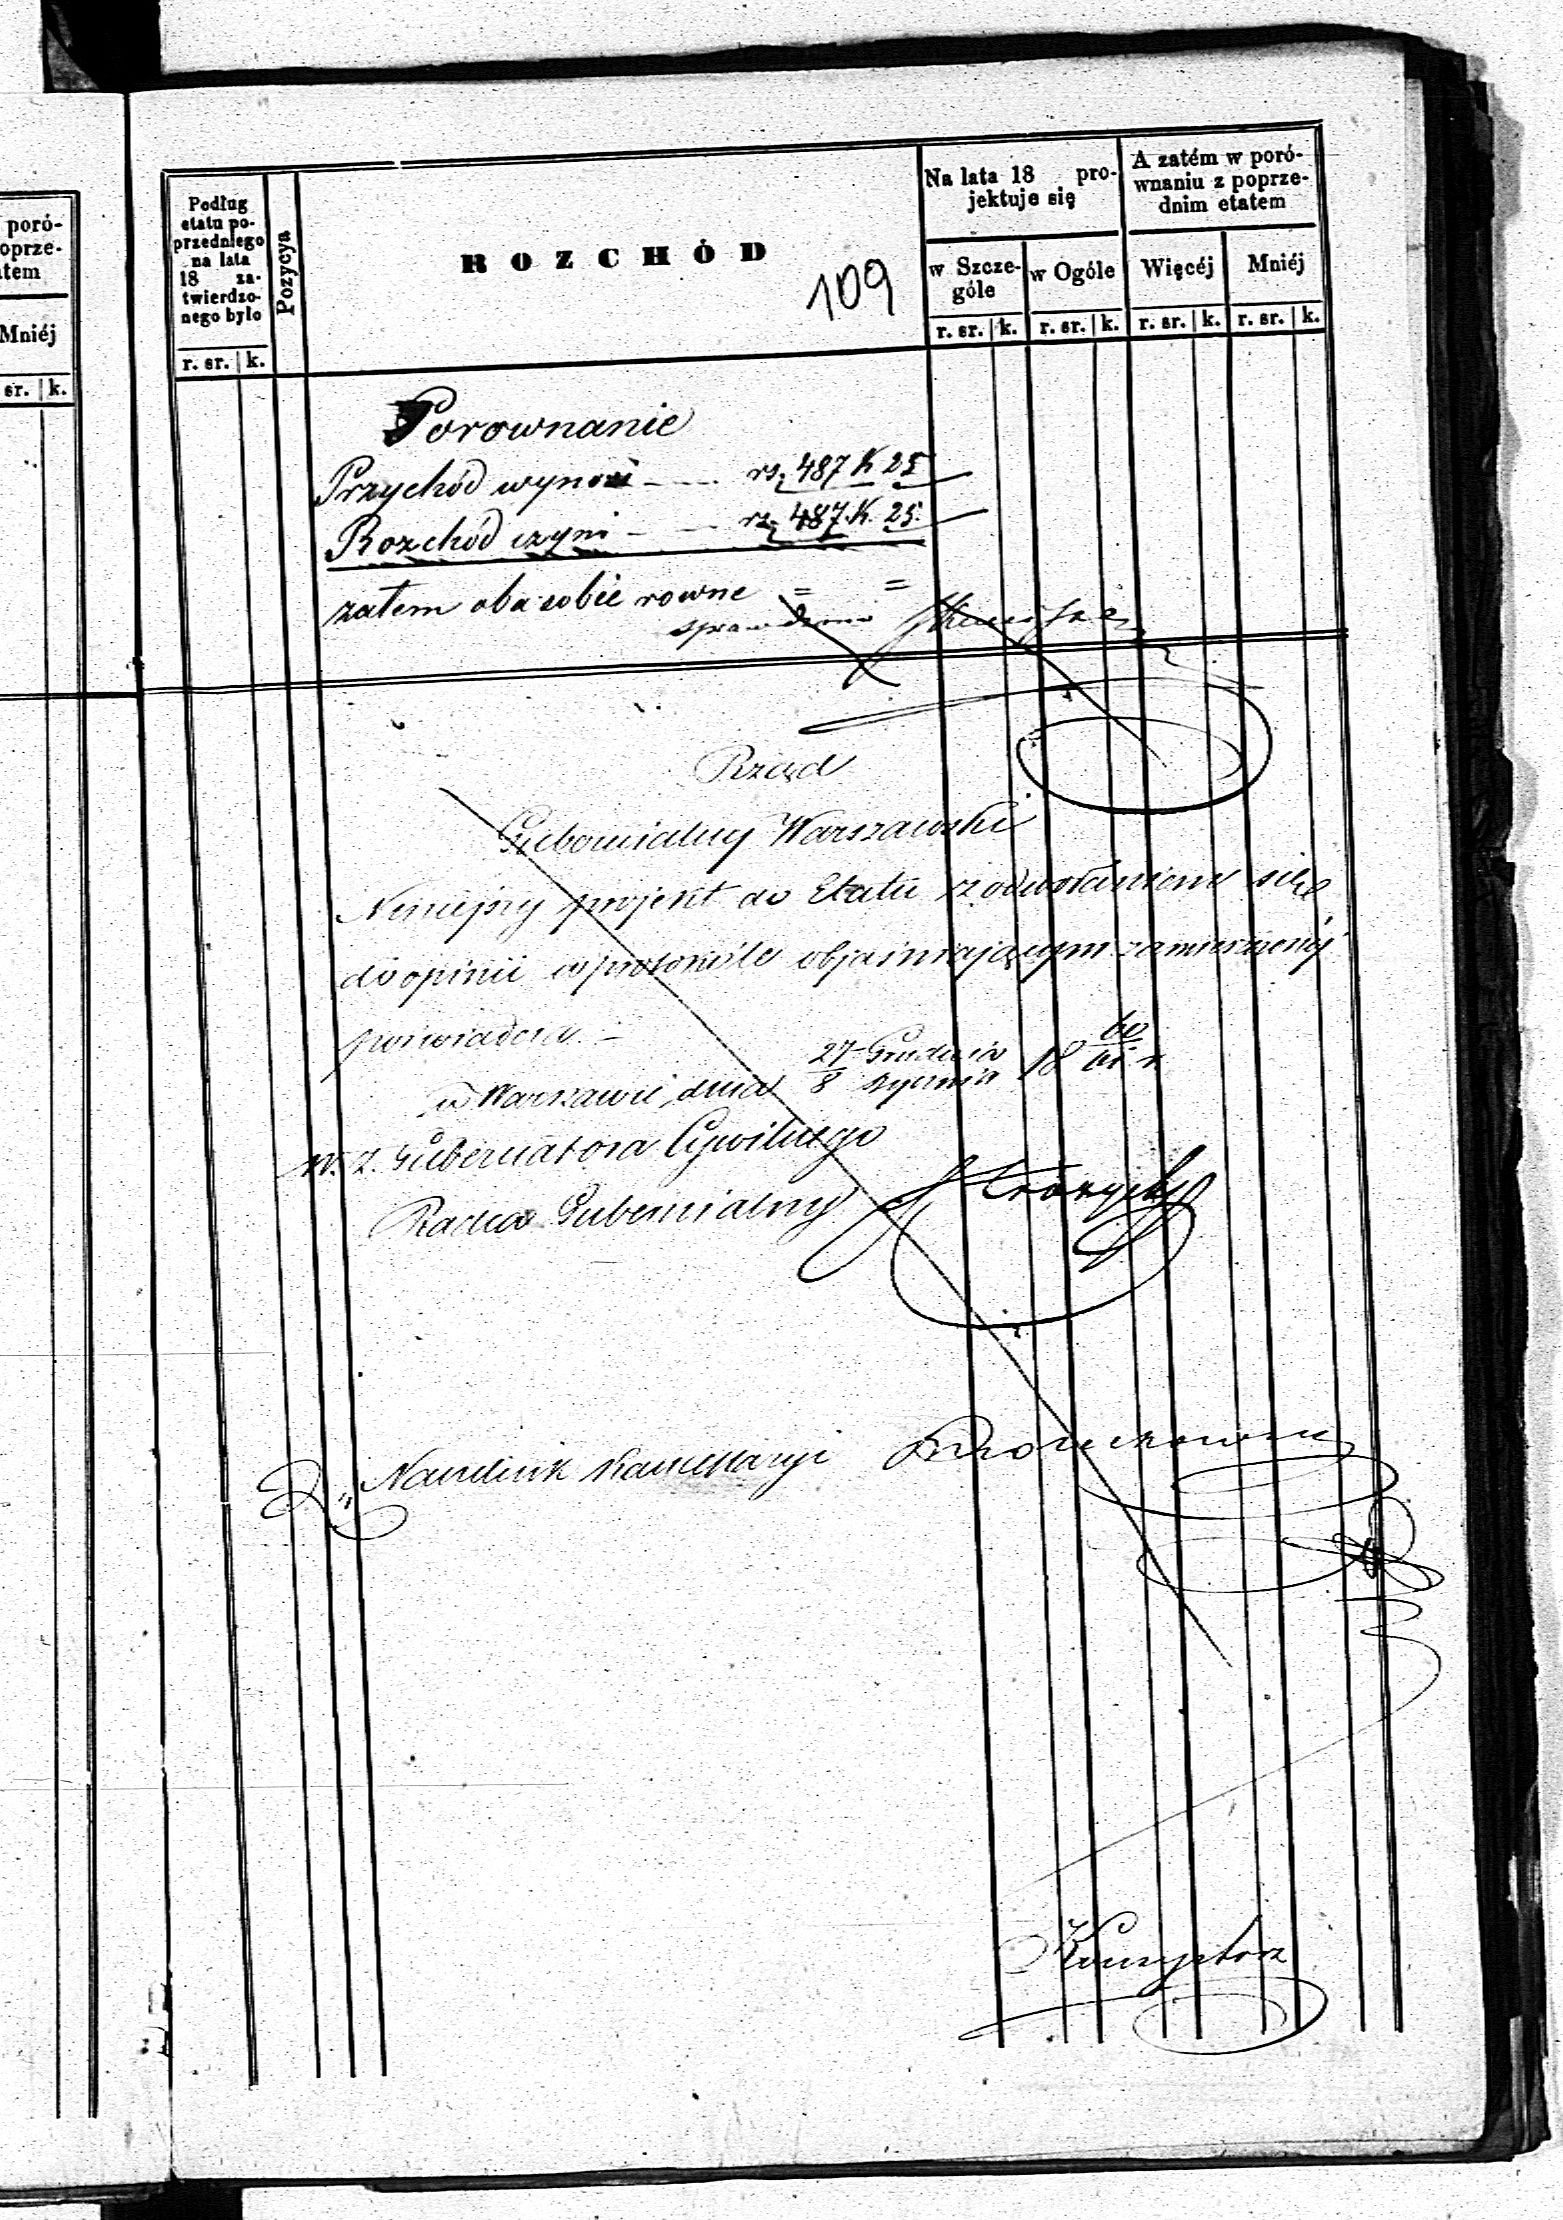 poró-
oprze-
tem
Mniéj
sr. k.
Podług
etatu po-
przedniego
na lata
18 za-
twierdzo-
nego było
r. sr. k.
Pozycya
ROZCHÓD
109
Na lata 18 pro-
jektuje się
w Szcze-
góle
w Ogóle
r. sr. k. r. sr. k.
A zatém w poró-
wnaniu z poprze-
dnim etatem
Więcéj Mniéj
r. sr. k. r. sr. k.
Porownanie
Przychód wynosi rs. 487 K 25
Rozchód czyni rs. 487. K. 25.
zatem oba sobie rowne = =
sprawdzono
Rząd
Gubernialny Warszawski
Niniejszy projekt do Etatu z odwołaniem się
do opinii w protokóle objaśniającym zamieszczonéj
poświadcza. –
w Warszawie dnia 27 Grudnia / 8 Stycznia 18 60/61 r
W. Z. Gubernatora Cywilnego
Radca Gubernialny
Naczelnik Kancellaryi